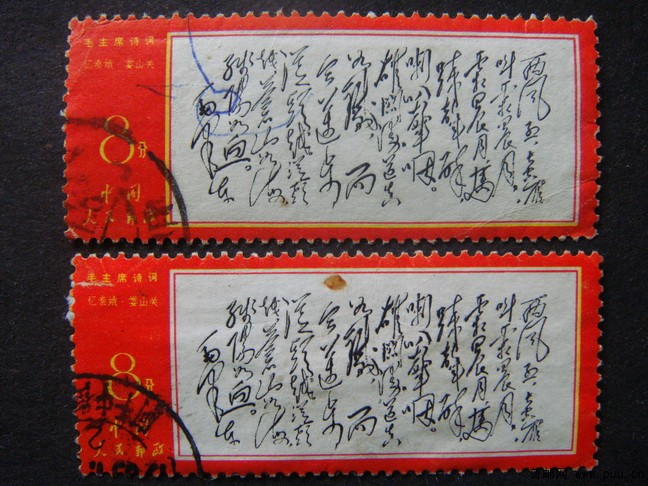 毛主席诗词
忆秦娥·娄山关
8分
中国
人民邮政
西风烈长空雁
叫霜晨月。
霜晨月马
蹄声碎
喇叭声咽。
雄关漫道真
如铁而
今迈步
从头越从头
越苍山如海
残阳如血。
毛泽东
毛主席诗词
忆秦娥·娄山关
8分
中国
人民邮政
西风烈长空雁
叫霜晨月。
霜晨月马
蹄声碎
喇叭声咽。
雄关漫道真
如铁而
今迈步
从头越从头
越苍山如海
残阳如血。
毛泽东